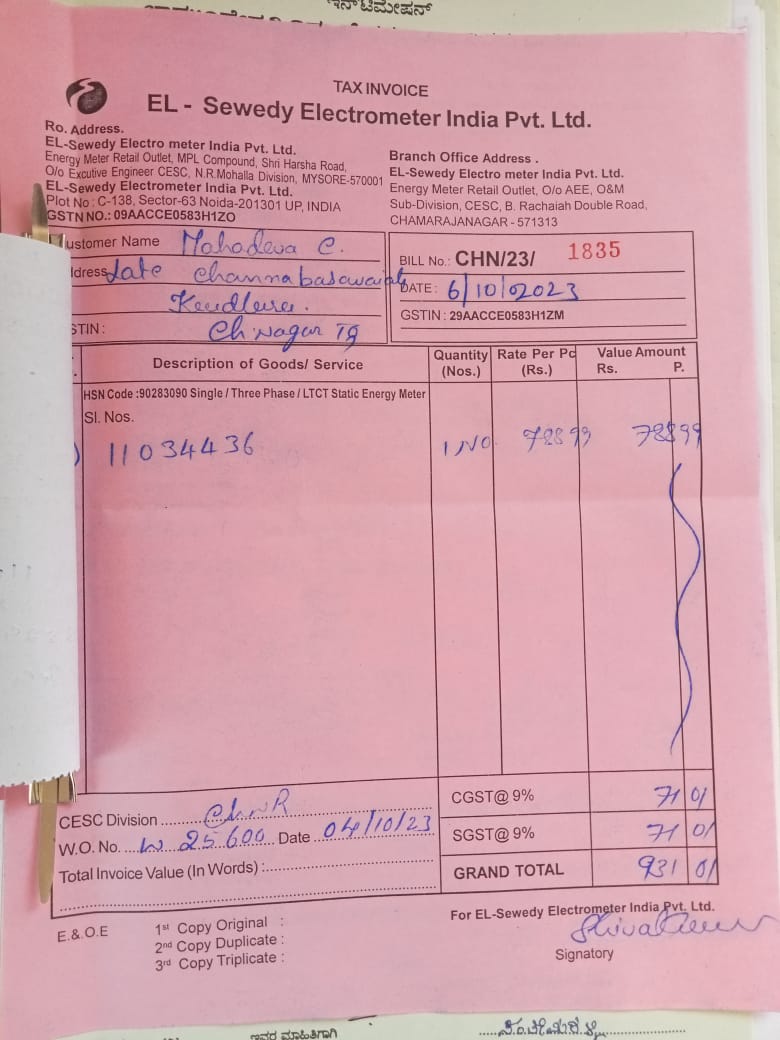 ಇನ್‌ಟಿಮೇಷನ್
TAX INVOICE
EL - Sewedy Electrometer India Pvt. Ltd.
Ro. Address.
EL-Sewedy Electro meter India Pvt. Ltd.
Energy Meter Retail Outlet, MPL Compound, Shri Harsha Road,
O/o Excutive Engineer CESC, N.R.Mohalla Division, MYSORE-570001
EL-Sewedy Electrometer India Pvt. Ltd.
Plot No : C-138, Sector-63 Noida-201301 UP, INDIA
GSTN NO.: 09AACCE0583H1ZO
Branch Office Address .
EL-Sewedy Electro meter India Pvt. Ltd.
Energy Meter Retail Outlet, O/o AEE, O&M
Sub-Division, CESC, B. Rachaiah Double Road,
CHAMARAJANAGAR - 571313
ustomer Name Mahadeva C.
ddress Late Channabasavaiah
Kendlura.
STIN: Ch Nagar Tq
BILL No.: CHN/23/ 1835
DATE: 6/10/2023
GSTIN : 29AACCE0583H1ZM
Description of Goods/ Service Quantity (Nos.) Rate Per Pc (Rs.) Value Amount Rs. P.
HSN Code :90283090 Single / Three Phase / LTCT Static Energy Meter
Sl. Nos.
) 11034436 1 NO 788 99 788 99
CGST@ 9% 71 01
SGST@ 9% 71 01
GRAND TOTAL 931 01
CESC Division ChnR
W.O. No. W 25600 Date 04/10/23
Total Invoice Value (In Words) :
E.& O.E
1st Copy Original :
2nd Copy Duplicate :
3rd Copy Triplicate :
For EL-Sewedy Electrometer India Pvt. Ltd.
Signatory
ಇವರ ಮಾಹಿತಿಗಾಗಿ